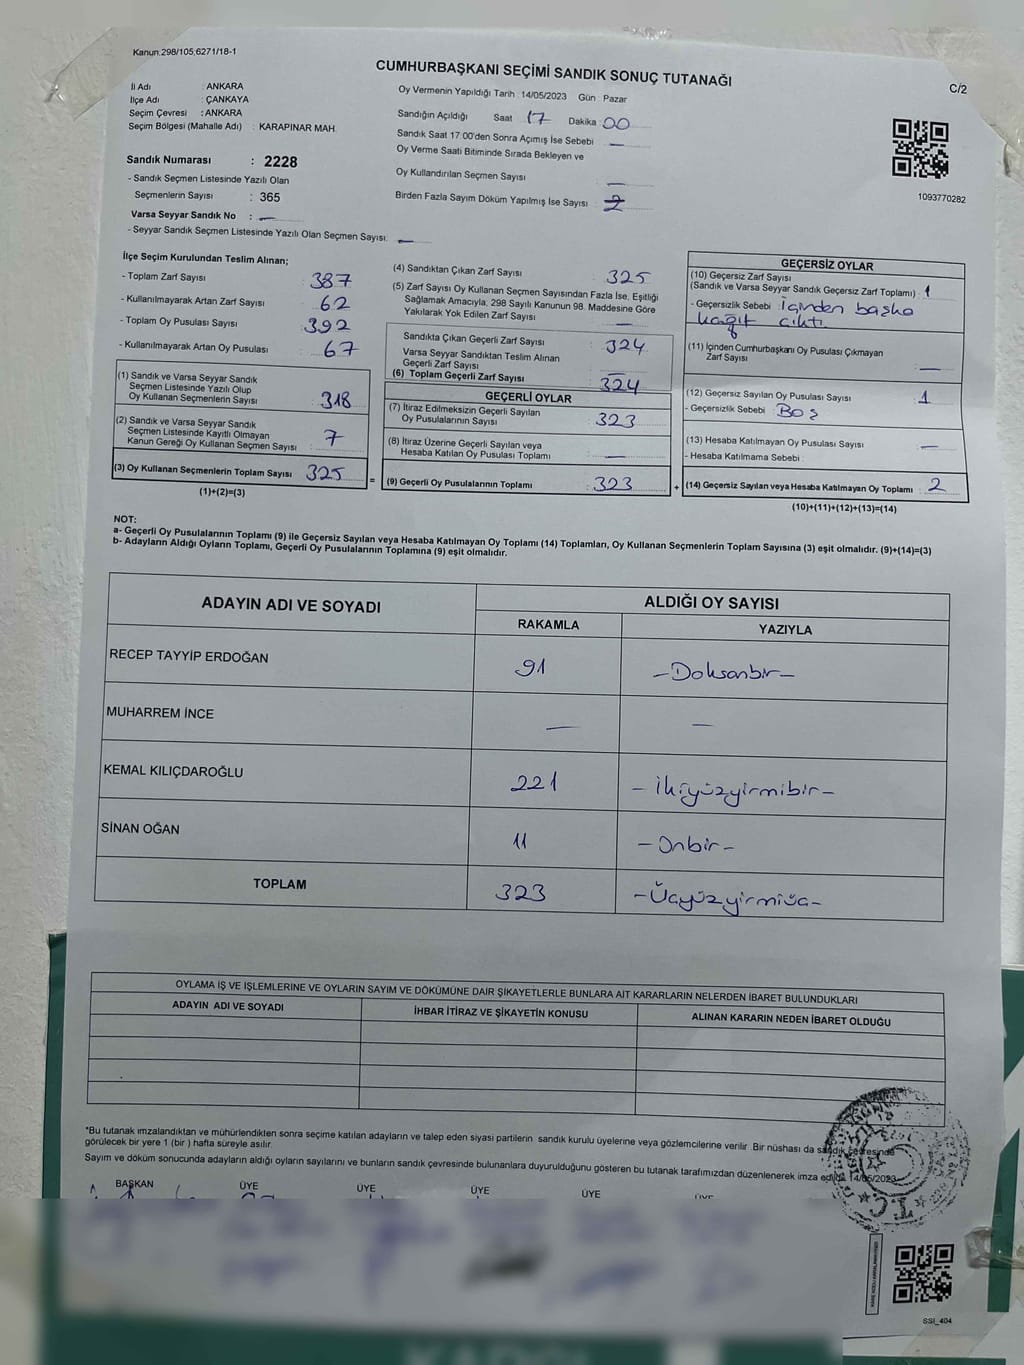 Kanun:298/105;6271/18-1
CUMHURBAŞKANI SEÇİMİ SANDIK SONUÇ TUTANAĞI
C/2
İl Adı : ANKARA
İlçe Adı : ÇANKAYA
Seçim Çevresi : ANKARA
Seçim Bölgesi (Mahalle Adı) : KARAPINAR MAH.
Sandık Numarası : 2228
- Sandık Seçmen Listesinde Yazılı Olan
Seçmenlerin Sayısı : 365
Varsa Seyyar Sandık No : —
- Seyyar Sandık Seçmen Listesinde Yazılı Olan Seçmen Sayısı: —
Oy Vermenin Yapıldığı Tarih : 14/05/2023 Gün : Pazar
Sandığın Açıldığı Saat 17 Dakika : 00
Sandık Saat 17:00'den Sonra Açımış İse Sebebi —
Oy Verme Saati Bitiminde Sırada Bekleyen ve
Oy Kullandırılan Seçmen Sayısı : —
Birden Fazla Sayım Döküm Yapılmış İse Sayısı : 2
1093770282
İlçe Seçim Kurulundan Teslim Alınan;
- Toplam Zarf Sayısı : 387
- Kullanılmayarak Artan Zarf Sayısı : 62
- Toplam Oy Pusulası Sayısı : 392
- Kullanılmayarak Artan Oy Pusulası : 67
(1) Sandık ve Varsa Seyyar Sandık
Seçmen Listesinde Yazılı Olup
Oy Kullanan Seçmenlerin Sayısı : 318
(2) Sandık ve Varsa Seyyar Sandık
Seçmen Listesinde Kayıtlı Olmayan
Kanun Gereği Oy Kullanan Seçmen Sayısı : 7
(3) Oy Kullanan Seçmenlerin Toplam Sayısı : 325
(1)+(2)=(3)
(4) Sandıktan Çıkan Zarf Sayısı : 325
(5) Zarf Sayısı Oy Kullanan Seçmen Sayısından Fazla İse, Eşitliği
Sağlamak Amacıyla; 298 Sayılı Kanunun 98. Maddesine Göre
Yakılarak Yok Edilen Zarf Sayısı : —
Sandıkta Çıkan Geçerli Zarf Sayısı : 324
Varsa Seyyar Sandıktan Teslim Alınan
Geçerli Zarf Sayısı : —
(6) Toplam Geçerli Zarf Sayısı : 324
GEÇERLİ OYLAR
(7) İtiraz Edilmeksizin Geçerli Sayılan
Oy Pusulalarının Sayısı : 323
(8) İtiraz Üzerine Geçerli Sayılan veya
Hesaba Katılan Oy Pusulası Toplamı : —
= (9) Geçerli Oy Pusulalarının Toplamı : 323
GEÇERSİZ OYLAR
(10) Geçersiz Zarf Sayısı
(Sandık ve Varsa Seyyar Sandık Geçersiz Zarf Toplamı) : 1
- Geçersizlik Sebebi : İçinden başka
kağıt çıktı.
(11) İçinden Cumhurbaşkanı Oy Pusulası Çıkmayan
Zarf Sayısı : —
(12) Geçersiz Sayılan Oy Pusulası Sayısı : 1
- Geçersizlik Sebebi : Boş
(13) Hesaba Katılmayan Oy Pusulası Sayısı : —
- Hesaba Katılmama Sebebi :
+ (14) Geçersiz Sayılan veya Hesaba Katılmayan Oy Toplamı : 2
(10)+(11)+(12)+(13)=(14)
NOT:
a- Geçerli Oy Pusulalarının Toplamı (9) ile Geçersiz Sayılan veya Hesaba Katılmayan Oy Toplamı (14) Toplamları, Oy Kullanan Seçmenlerin Toplam Sayısına (3) eşit olmalıdır. (9)+(14)=(3)
b- Adayların Aldığı Oyların Toplamı, Geçerli Oy Pusulalarının Toplamına (9) eşit olmalıdır.
ADAYIN ADI VE SOYADI ALDIĞI OY SAYISI
RAKAMLA YAZIYLA
RECEP TAYYİP ERDOĞAN 91 -Doksanbir-
MUHARREM İNCE — —
KEMAL KILIÇDAROĞLU 221 - İkiyüzyirmibir-
SİNAN OĞAN 11 -Onbir-
TOPLAM 323 -Üçyüzyirmiüç-
OYLAMA İŞ VE İŞLEMLERİNE VE OYLARIN SAYIM VE DÖKÜMÜNE DAİR ŞİKAYETLERLE BUNLARA AİT KARARLARIN NELERDEN İBARET BULUNDUKLARI
ADAYIN ADI VE SOYADI İHBAR İTİRAZ VE ŞİKAYETİN KONUSU ALINAN KARARIN NEDEN İBARET OLDUĞU
*Bu tutanak imzalandıktan ve mühürlendikten sonra seçime katılan adayların ve talep eden siyasi partilerin sandık kurulu üyelerine veya gözlemcilerine verilir. Bir nüshası da sandık çevresinde
görülecek bir yere 1 (bir ) hafta süreyle asılır.
Sayım ve döküm sonucunda adayların aldığı oyların sayılarını ve bunların sandık çevresinde bulunanlara duyurulduğunu gösteren bu tutanak tarafımızdan düzenlenerek imza edildi. 14/05/2023
BAŞKAN ÜYE ÜYE ÜYE ÜYE ÜYE
T.C.
SSI_404